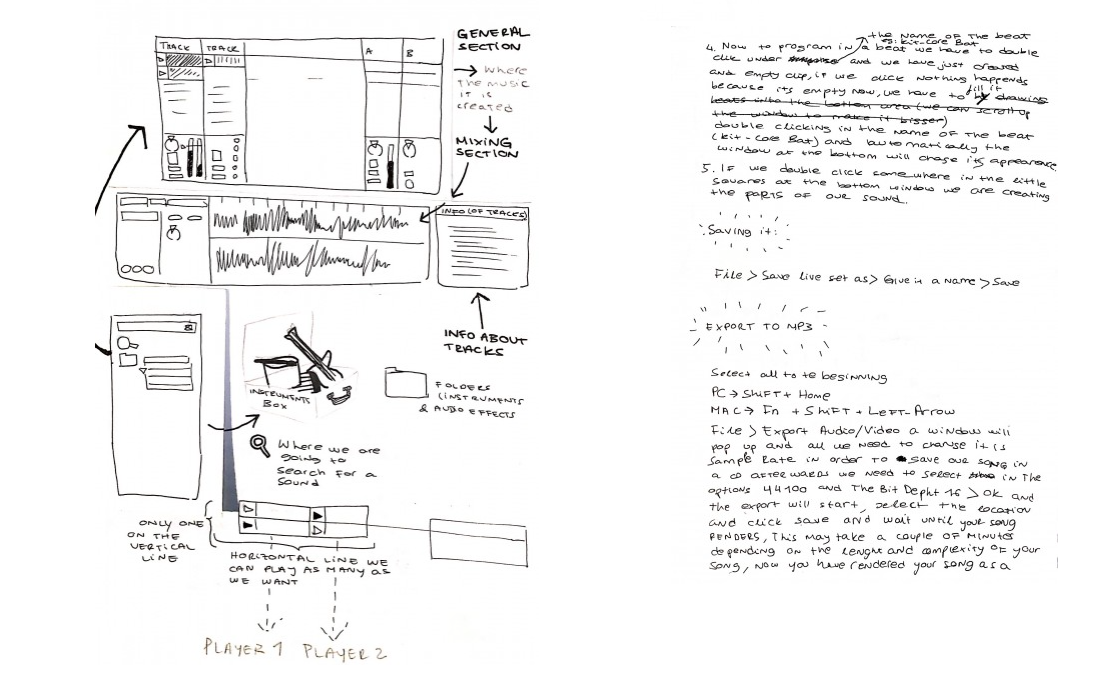 TRACK
TRACK
A
B
GENERAL
SECTION
→ Where
THE MUSIC
IT IS
created
MIXING
SECTION
INFO (OF TRACES)
INFO ABOUT
TRACKS
INSTRUMENTS
BOX
FOLDERS
(INSTRUMENTS
& AUDIO EFFECTS
Where we are
going to
SEARCH FOR A
SOUND
ONLY ONE
ON THE
VERTICAL
LINE
HORIZONTAL LINE WE
CAN PLAY AS MANY AS
WE WANT
PLAYER 1 PLAYER 2
the name of the beat
eg: kit-core Bat
4. Now to program in a beat we have to double
click under and we have just created
and empty clip, if we click nothing happends
because its empty now, we have to fill it
by drawing
beats into the bottom area (we can scroll up
the window to make it bigger)
double clicking in the name of the beat
(kit-core Bat) and automatically the
window at the bottom will chage its appearence
5. IF we double click somewhere in the little
squares at the bottom window we are creating
the parts of our sound.
Saving it:
File > Save live set as > Give it a name > Save
EXPORT TO MP3
Select all to te beginning
PC → SHIFT + Home
MAC → Fn + SHIFT + LEFT-Arrow
File > Export Audio/Video a window will
pop up and all we need to change it is
Sample Rate in order to save our song in
a cd afterwards we need to select in the
options 44100 and The Bit Depht 16 > OK and
the export will start, select the location
and click save and wait until your song
RENDERS, This may take a couple of minutes
depending on the lenght and complexity of your
song, now you have rendered your song as a